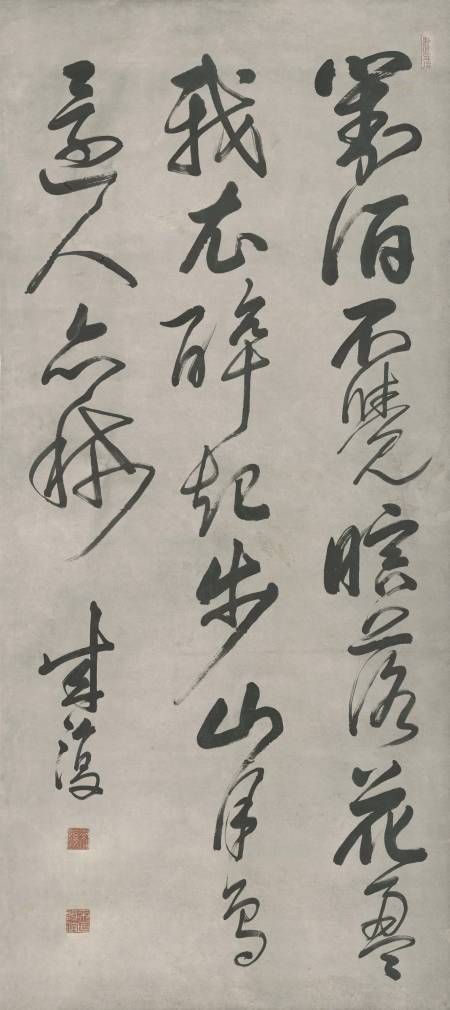 對酒不覺暝落花盈
我衣醉起步山月鳥
還人亦稀